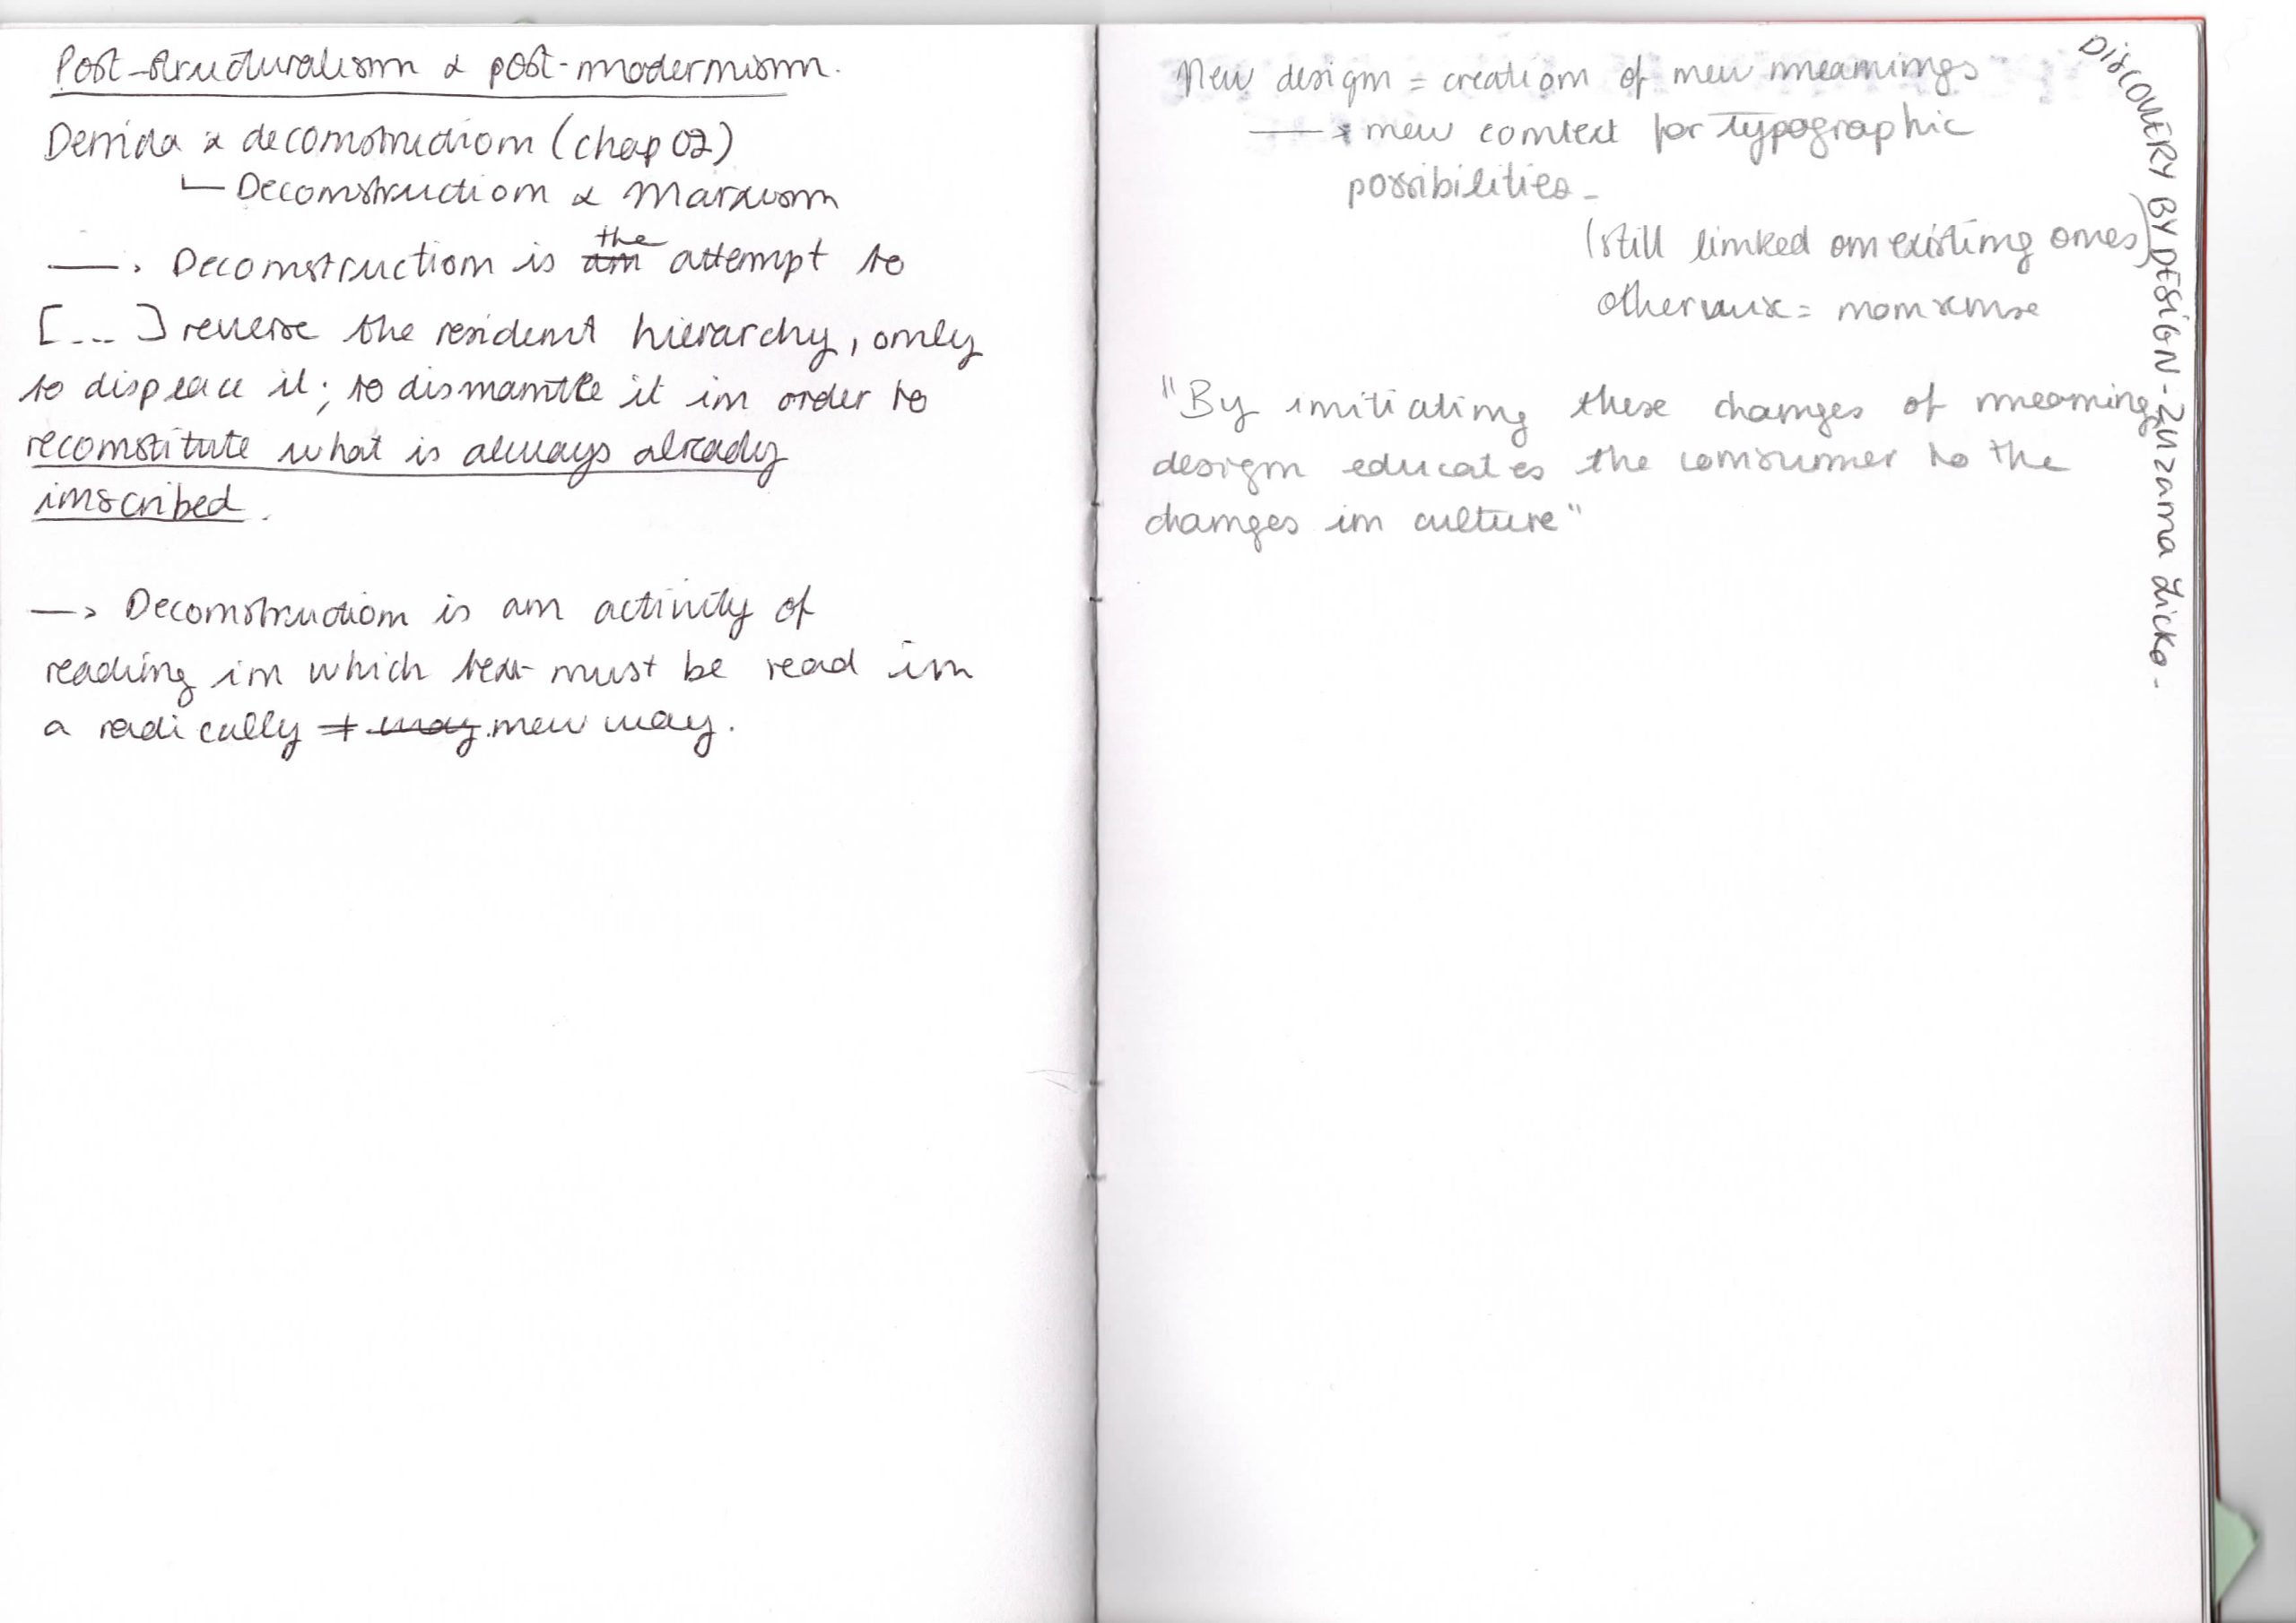 Post-structuralism & post-modernism.
Derrida & deconstruction (chap 02)
Deconstruction & Marxism
the
→ Deconstruction is an attempt to
[...] reverse the resident hierarchy, only
to displace it; to dismantle it in order to
reconstitute what is always already
inscribed.
→ Deconstruction is an activity of
reading in which text must be read in
a radically ≠ way. new way.
New design = creation of new meanings
→ new context for typographic
possibilities -
(still linked on existing ones)
otherwise = nonsense
"By initiating these changes of meaning,
design educates the consumer to the
changes in culture"
DISCOVERY BY DESIGN - Zuzana Licko -